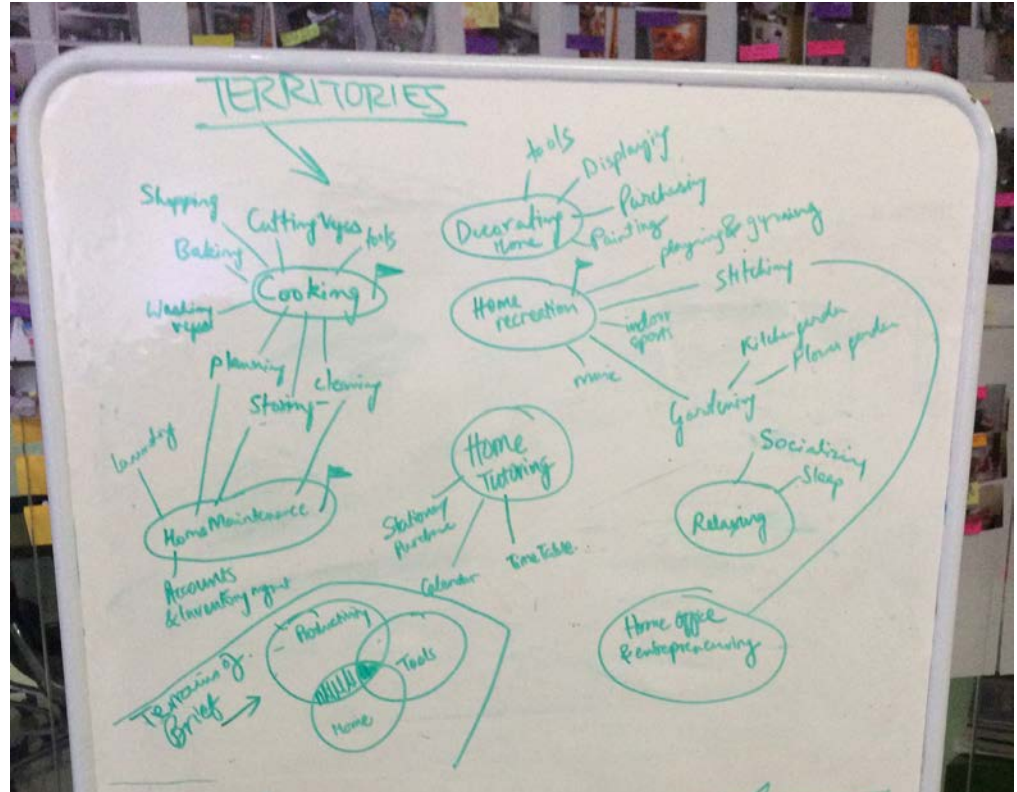 TERRITORIES
Shopping
Cutting Veges
tools
Baking
Cooking
Washing
planning
Storing
cleaning
laundry
Home Maintenance
Accounts
& Inventory mgmt
tools
Displaying
Purchasing
Painting
Decorating
Home
playing & gymming
Stitching
Home
recreation
indoor
sports
music
Kitchen garden
Flower garden
Gardening
Home
Tutoring
Stationary
Purchase
Calendar
Time Table
Socializing
Sleep
Relaxing
Home office
& entrepreneuring
Terrains of
Brief
Productivity
Tools
Home